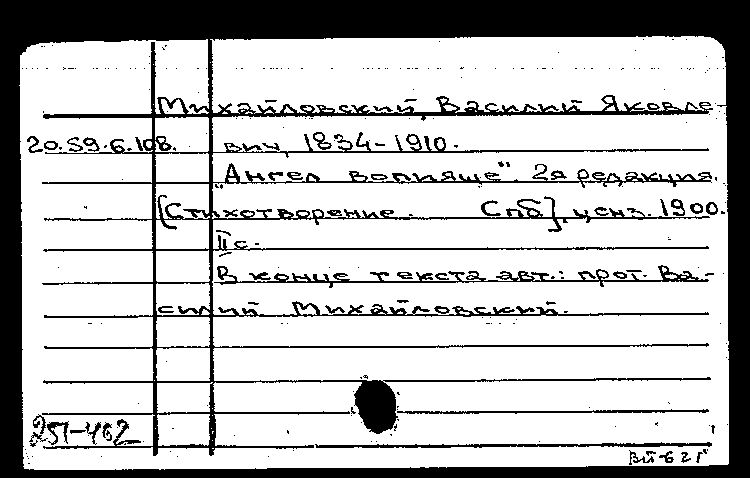 Михайловский, Василий Яковле-
20.59.6.108. вич, 1834-1910.
„Ангел вопияще". 2я редакция.
[Стихотворение. Спб], ценз. 1900.
II с.
В конце текста авт.: прот. Ва-
силий Михайловский.
251-402